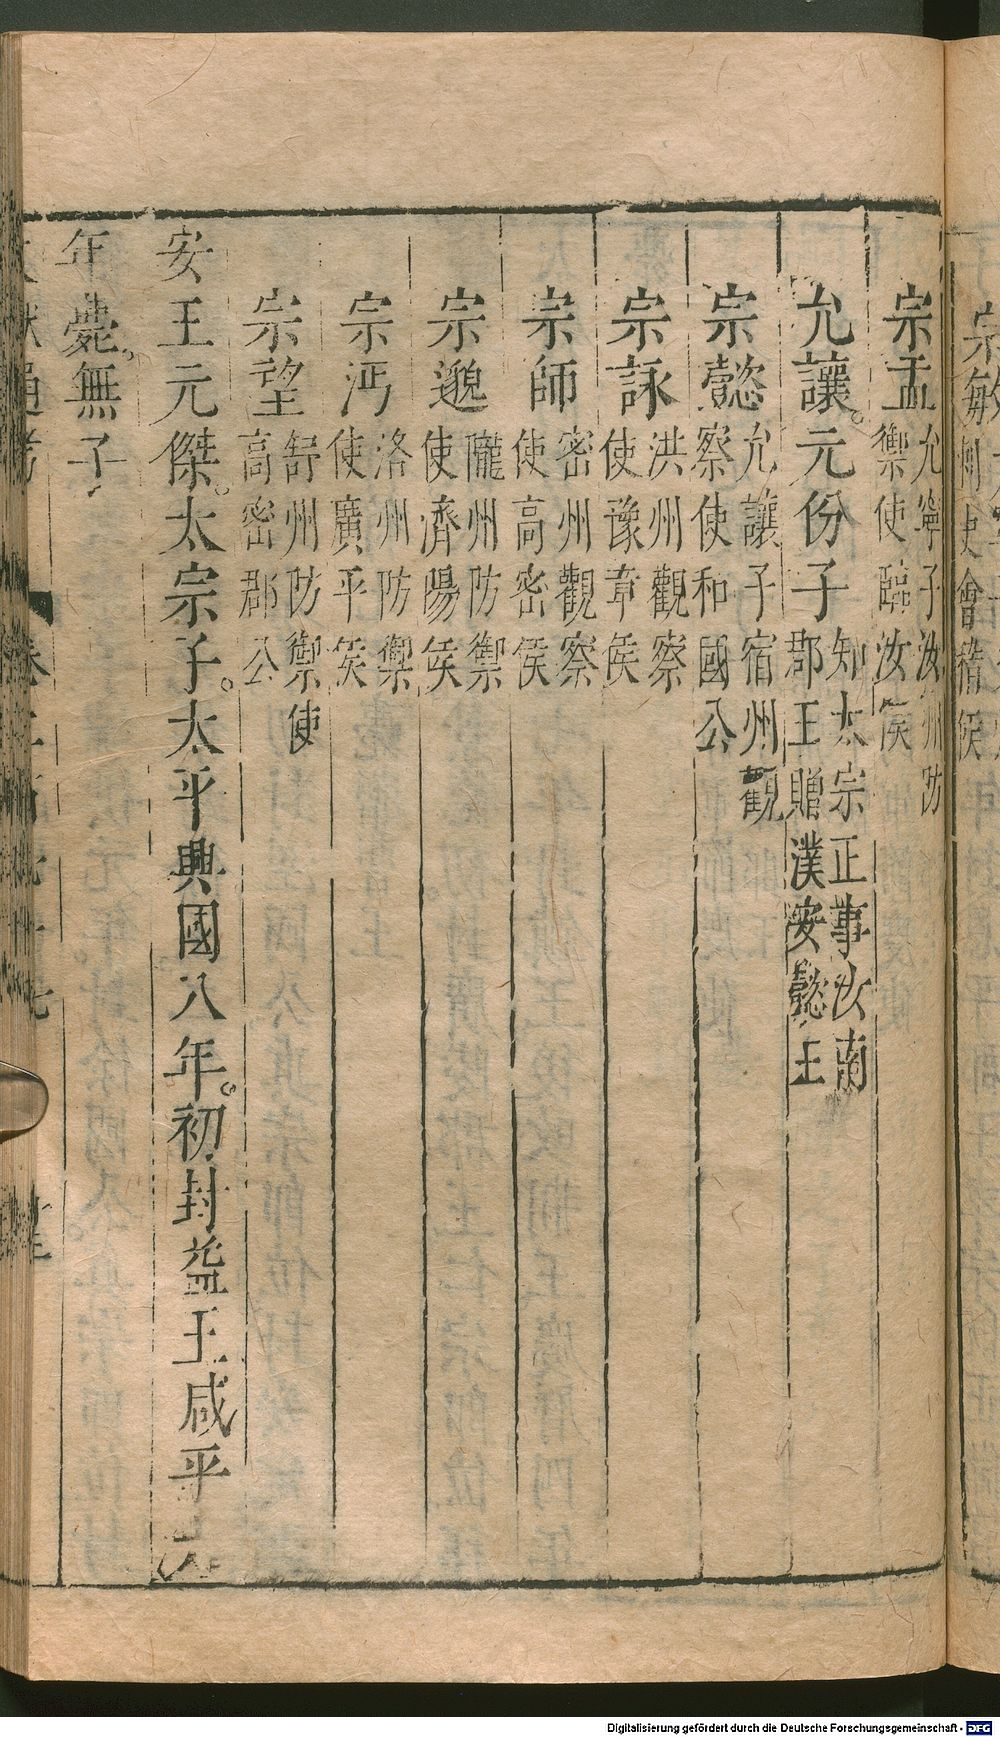 宗孟允寧子汝州防禦使臨汝侯
允讓。元份子知太宗正事汝南郡王贈濮安懿王
宗懿允讓子宿州觀察使和國公
宗詠洪州觀察使豫章侯
宗師密州觀察使高密侯
宗邈隴州防禦使濟陽侯
宗沔洛州防禦使廣平侯
宗望舒州防禦使高密郡公
安王元傑。太宗子。太平興國八年。初封益王咸平六
年薨。無子
Digitalisierung gefördert durch die Deutsche Forschungsgemeinschaft - DFG